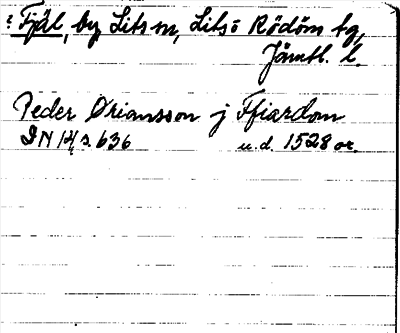 : Fjäl, by Lits sn, Lits o Rödöns tg,
Jämtl. l.
Peder Ørianssson j Ffiardom
DN 14 s. 636 u.d. 1528 or.